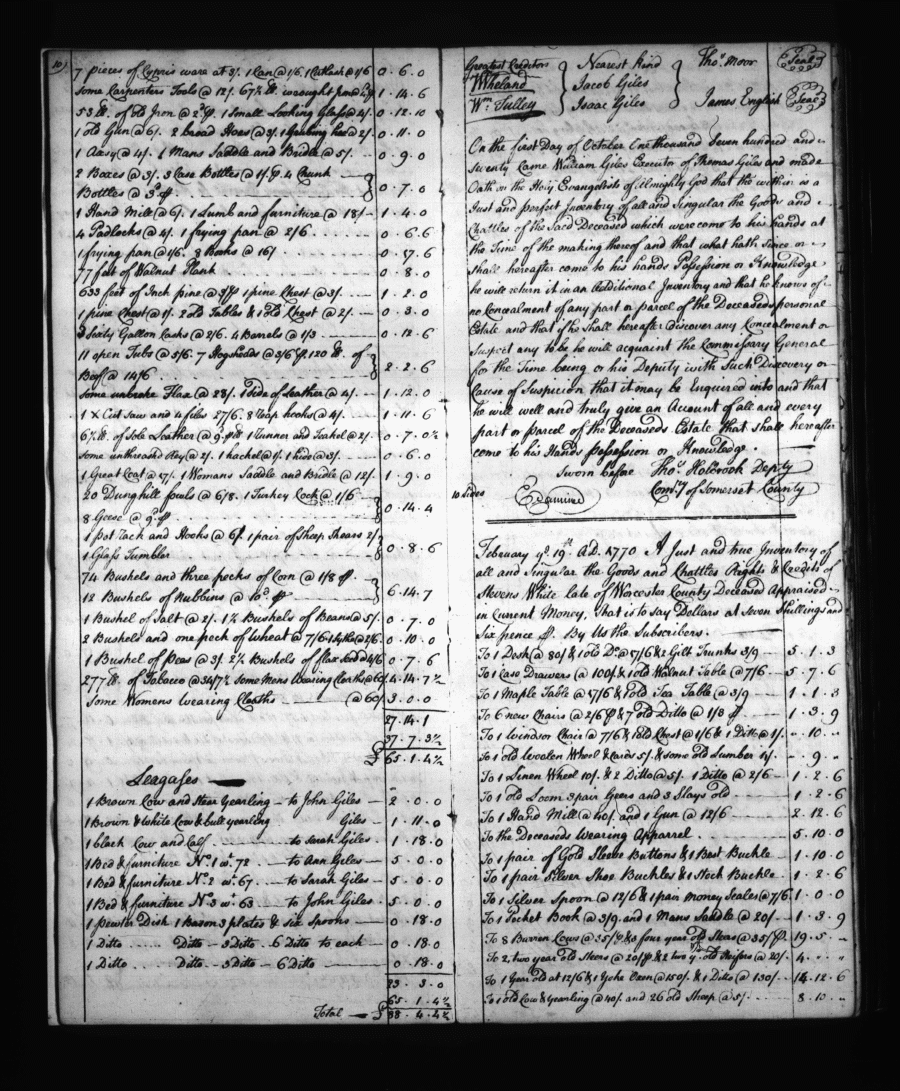 10
7 pieces of Cypris ware at 3/. 1 Can @ 1/6, 1 Cutlash @ 1/6 0 . 6 . 0
Some Carpenters Tools @ 12/. 67½ lb. wrought 1 . 14 . 6
53 lb. of old Iron @ 2d. 1 Small Looking Glass @ 4/. 0 . 12 . 10
1 old Gun @ 6/. 2 broad Hoes @ 3/. 1 Grubing hoe @ 2/. 0 . 11 . 0
1 @ 4/. 1 Mans Saddle and Bridle @ 5/. 0 . 9 . 0
2 Boxes @ 3/. 3 Case Bottles @ 1/. 4 Chunk
Bottles @ 3d. 0 . 7 . 0
1 Hand Mill @ 6/. 1 Lumb and furniture @ 18/ 1 . 4 . 0
4 Padlocks @ 4/. 1 frying pan @ 2/6 0 . 6 . 6
1 frying pan @ 1/6. 8 Books @ 16/ 0 . 17 . 6
77 feet of Walnut Plank 0 . 8 . 0
633 feet of Inch pine @ 1 pine Chest @ 3/. 1 . 2 . 0
1 pine Chest @ 1/. 2 old Tables & 1 old Chest @ 2/. 0 . 3 . 0
3 Sixty Gallon Casks @ 2/6. 4 Barrels @ 1/3 0 . 12 . 6
11 open Tubs @ 5/6. 7 Hogsheads @ 3/6 p. 120 lb. of
Beef @ 14/6 2 . 2 . 6
Some unbroke Flax @ 28/. 1 Side of Leather @ 4/. 1 . 12 . 0
1 X Cut Saw and 4 files 27/6. 8 Reap hooks @ 4/. 1 . 11 . 6
6½ lb. of Sole Leather @ 9d. 1 Tunner and @ 2/. 0 . 7 . 0½
Some unthreshed Rey @ 2/. 1 hachel @ 1/. 1 hide @ 3/. 0 . 6 . 0
1 Great Coat @ 17/. 1 Womans Saddle and Bridle @ 12/. 1 . 9 . 0
20 Dunghill fouls @ 6/8. 1 Turkey Cock @ 1/6
8 Geese @ 9d. 0 . 14 . 4
1 Pot Rack and Hooks @ 6/. 1 pair of Sheep Shears 2/
1 Glass Tumbler 0 . 8 . 6
74 Bushels and three pecks of Corn @ 1/8 p.
12 Bushels of Nubbins @ 10d. p. 6 . 14 . 7
1 Bushel of Salt @ 2/. 1¼ Bushels of Beans @ 5/. 0 . 7 . 0
2 Bushels and one peck of wheat @ 7/6. 1 Sythe @ 2/6. 0 . 10 . 0
1 Bushel of Peas @ 3/. 2¼ Bushels of flax seed @ 4/6 0 . 7 . 6
277 lb. of Tobacco @ 34/7½ Some Mens Wearing Cloaths @ 60/ 4 . 14 . 7½
Some Womens wearing Cloaths @ 60/. 3 . 0 . 0
27 . 14 . 1
37 . 7 . 3½
£ 65 . 1 . 4½
Leagases
1 Brown Cow and Steer Yearling – to John Giles 2 . 0 . 0
1 Brown & white Cow & bull yearling Giles 1 . 11 . 0
1 black Cow and Calf to Sarah Giles 1 . 18 . 0
1 Bed & furniture No. 1 wt. 72 to Ann Giles 5 . 0 . 0
1 Bed & furniture No. 2 wt. 67 to Sarah Giles 5 . 0 . 0
1 Bed & furniture No. 3 wt. 63 to John Giles 5 . 0 . 0
1 pewter Dish 1 Bason 3 plates & six Spoons 0 . 18 . 0
1 Ditto Ditto – 3 Ditto – 6 Ditto to each 0 . 18 . 0
1 Ditto Ditto – 3 Ditto – 6 Ditto 0 . 18 . 0
23 . 3 . 0
65 . 1 . 4½
Total £ 88 . 4 . 4½
Greatest Creditors Nearest Kind Thos. Moor Seal
Wheland Jacob Giles
Wm. Tulley Isaac Giles James English Seal
On the first Day of October One thousand Seven hundred and
Seventy Came William Giles Executor of Thomas Giles and made
Oath on the Holy Evangelists of Almighty God that the within is a
Just and perfect Inventory of all and Singular the Goods and
Chattles of the Said Deceased which were come to his hands at
the Time of the making thereof and that what hath Since or
Shall hereafter come to his hands Possession or Knowledge
he will return it in an Additional Inventory and that he knows of
no Concealment of any part or parcel of the Deceaseds personal
Estate and that if he Shall hereafter discover any Concealment or
Suspect any to be he will acquaint the Commissary General
for the Time being or his Deputy with Such Discovery or
Cause of Suspicion that it may be Enquired into and that
he will well and truly give an Account of all and every
part or parcel of the Deceaseds Estate that shall hereafter
come to his Hands Possession or Knowledge.
Sworn before Thos. Holbrook Deputy
10 Sides Examined Comry of Somerset County
February ye. 19th. A.D. 1770 A Just and true Inventory of
all and Singular the Goods and Chattles Rights & Credits of
Stevens White late of Worcester County Deceased Appraised
in Current Money, that is to say Dollars at Seven Shillings and
Six pence p. By Us the Subscribers.
To 1 Desk @ 80/ & 1 old Do. @ 17/6 & 2 Gilt Trunks 3/9 5 . 1 . 3
To 1 Case Drawers @ 100/. & 1 old Walnut Table @ 7/6 5 . 7 . 6
To 1 Maple Table @ 17/6 & 1 old Tea Table @ 3/9 1 . 1 . 3
To 6 new Chairs @ 2/6 p & 7 old Ditto @ 1/3 p 1 . 3 . 9
To 1 Windsor Chair @ 7/6 & 1 old Chest @ 1/6 & 1 Ditto @ 1/. " . 10 . "
To 1 old Woolen Wheel & Cards 5/. & some old Lumber 4/. " . 9 . "
To 1 Linen Wheel 10/. & 2 Ditto @ 5/. 1 Ditto @ 2/6 1 . 2 . 6
To 1 old Loom 3 pair Geers and 3 Slays old 1 . 2 . 6
To 1 Hand Mill @ 40/. and 1 Gun @ 12/6 2 . 12 . 6
To the Deceaseds Wearing Apparrel 5 . 10 . 0
To 1 pair of Gold Sleeve Buttons & 1 Best Buckle 1 . 10 . 0
To 1 pair Silver Shoe Buckles & 1 Stock Buckle 1 . 2 . 6
To 1 Silver Spoon @ 12/6 & 1 pair money Scales @ 7/6 1 . 0 . 0
To 1 Pocket Book @ 3/9. and 1 Mans Saddle @ 20/. 1 . 3 . 9
To 8 Barren Cows @ 35/ p & 3 four year old Steers @ 35/ p. 19 . 5 . "
To 2, two year old Steers @ 20/ p & 2 two yr. old Heifers @ 20/. 4 . "
To 1 Year old at 12/6 & 1 Yoke Oxen @ 150/. & 1 Ditto @ 130/. 14 . 12 . 6
To 1 old Cow & yearling @ 40/. and 26 old Sheep @ 5/. 8 . 10 . "